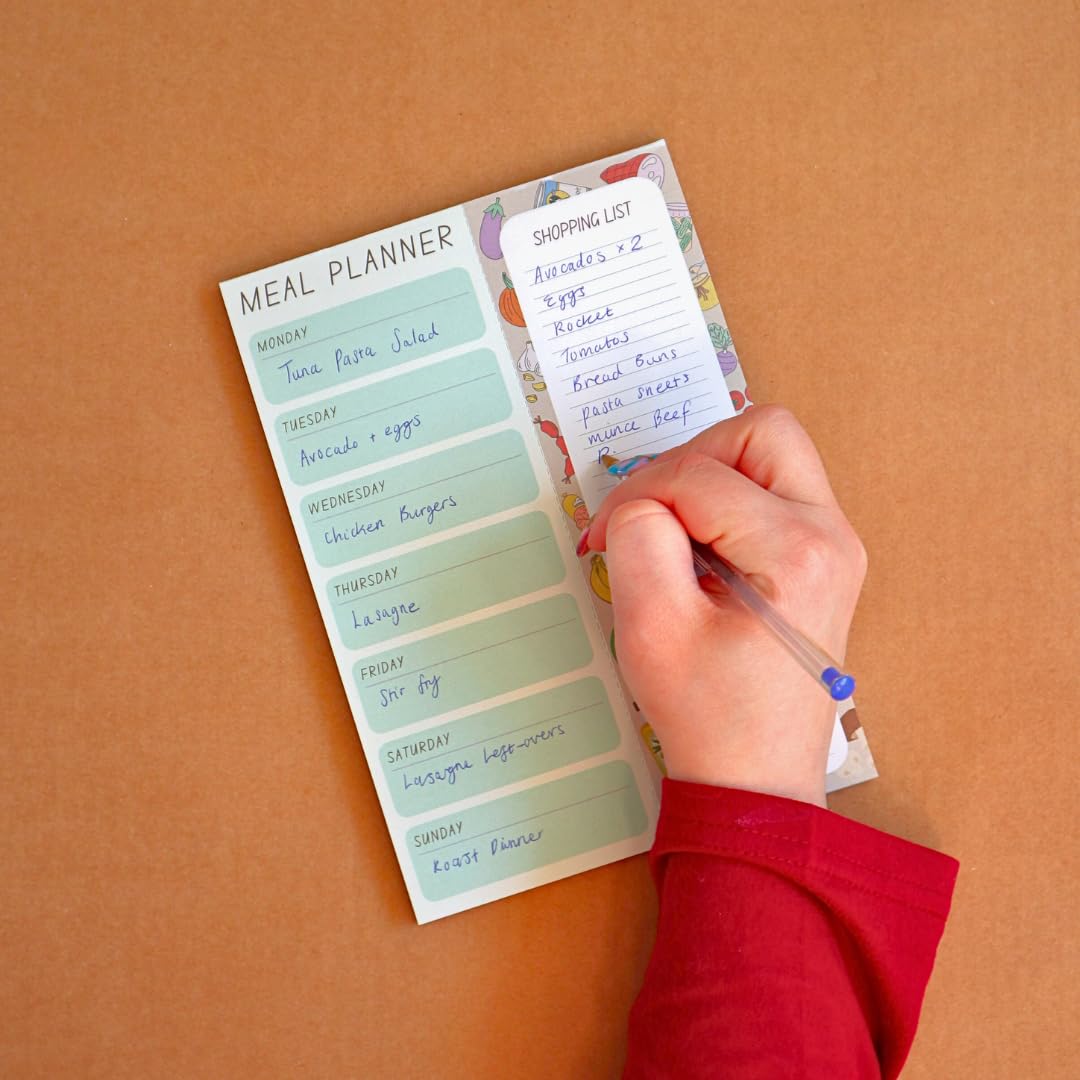 MEAL PLANNER
MONDAY
Tuna Pasta Salad
TUESDAY
Avocado + eggs
WEDNESDAY
Chicken Burgers
THURSDAY
Lasagne
FRIDAY
Stir fry
SATURDAY
Lasagne Left-overs
SUNDAY
Roast Dinner
SHOPPING LIST
Avocados x 2
Eggs
Rocket
Tomatos
Bread Buns
Pasta sheets
mince Beef